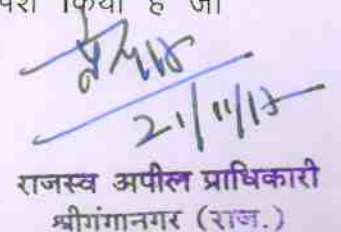 किया है जो
21/11/17
राजस्व अपील प्राधिकारी
श्रीगंगानगर (राज.)